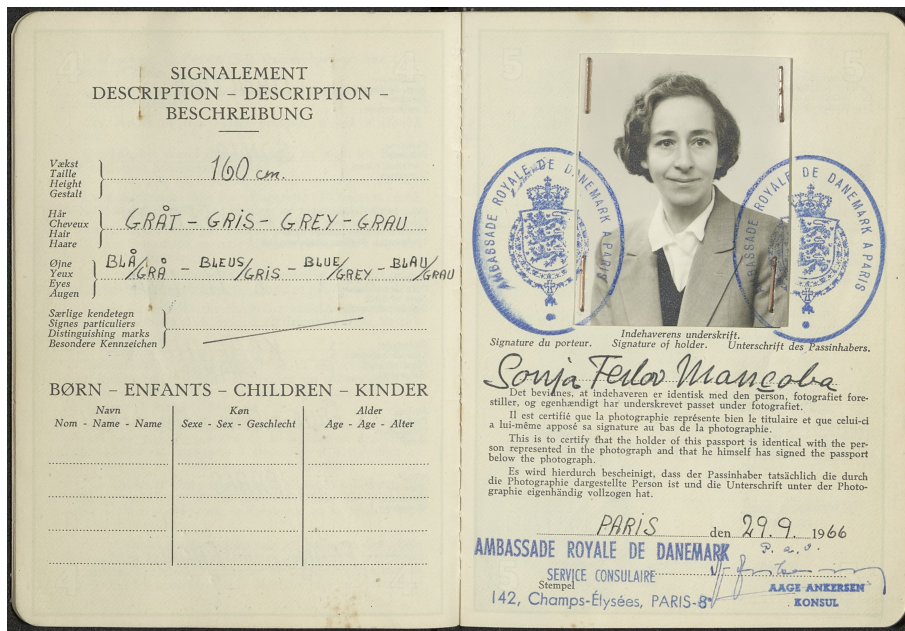 SIGNALEMENT
DESCRIPTION – DESCRIPTION –
BESCHREIBUNG
Vækst
Taille
Height
Gestalt
160 cm.
Hår
Cheveux
Hair
Haare
GRÅT - GRIS - GREY - GRAU
Øjne
Yeux
Eyes
Augen
BLÅ/GRÅ - BLEUS/GRIS - BLUE/GREY - BLAU/GRAU
Særlige kendetegn
Signes particuliers
Distinguishing marks
Besondere Kennzeichen
BØRN – ENFANTS – CHILDREN – KINDER
Navn
Nom - Name - Name
Køn
Sexe - Sex - Geschlecht
Alder
Age - Age - Alter
AMBASSADE ROYALE DE DANEMARK A PARIS
AMBASSADE ROYALE DE DANEMARK A PARIS
Indehaverens underskrift.
Signature du porteur. Signature of holder. Unterschrift des Passinhabers.
Sonja Ferlov Mancoba
Det bevidnes, at indehaveren er identisk med den person, fotografiet fore-
stiller, og egenhændigt har underskrevet passet under fotografiet.
Il est certifié que la photographie représente bien le titulaire et que celui-ci
a lui-même apposé sa signature au bas de la photographie.
This is to certify that the holder of this passport is identical with the per-
son represented in the photograph and that he himself has signed the passport
below the photograph.
Es wird hierdurch bescheinigt, dass der Passinhaber tatsächlich die durch
die Photographie dargestellte Person ist und die Unterschrift unter der Photo-
graphie eigenhändig vollzogen hat.
PARIS den 29.9. 1966
AMBASSADE ROYALE DE DANEMARK
P. a. v.
SERVICE CONSULAIRE
Stempel
AAGE ANKERSEN
142, Champs-Élysées, PARIS-8e
KONSUL